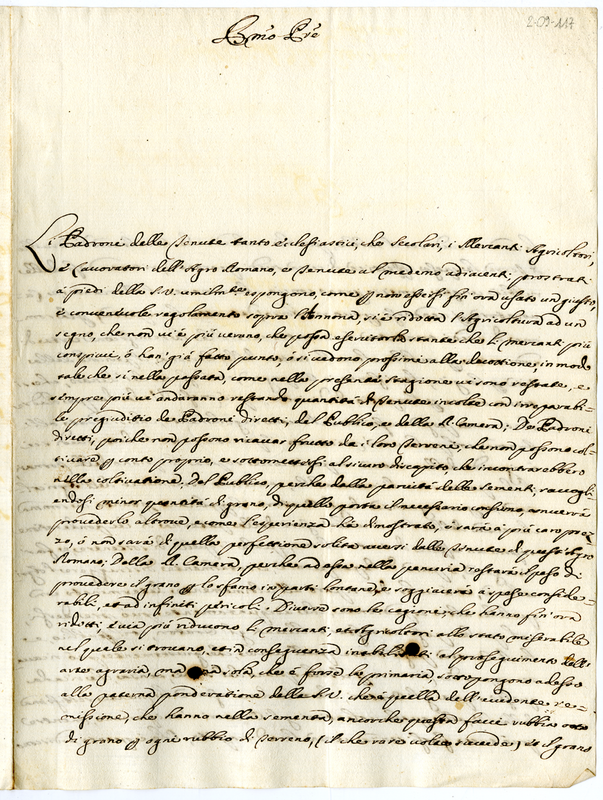 2-09-117
B.mo P.re
Li Padroni delle Tenute tanto ecclesiastici, che Secolari, i Mercanti Agricoltori,
e Lavoratori dell'Agro Romano, e Tenute al medemo adiacenti prostrati
a piedi della S.V. umilm.te espongono, come p non essersi fin'ora usato un giusto,
e convenevole regolamento sopra l'Annona, si è ridotta l'Agricoltura ad un
segno, che non vi è più veruno, che possa esercitarla stante che li mercanti più
conspicui, ò han' già fatto punto, ò si vedono prossimi alla decozione, in modo
tale che si nella passata, come nella presente stagione vi sono restate, e
sempre più vi andaranno restando quantità di Tenute incolte con irreparabi=
le pregiuditio de Padroni diretti, del Publico, e della R. Camera; De Padroni
diretti, poiche non possono ricavar frutto da i loro terreni, che non possono col=
tivare p conto proprio, e sottomettersi al sicuro discapito, che incontrarebbero
nella coltivatione. Del Publico, perche dalla parcità delle sementi, raccogli=
endosi minor quantità di grano, di quella porta il necessario consumo, converrà
provederlo altrove, e come l'esperienza hà dimostrato, ò sarà à più caro prez=
zo, ò non sarà di quella perfettione solita aversi dalle Tenute di questo Agro
Romano; Della R. Camera, perche ad essa nella penuria restarà il peso di
provedere il grano p lo sfamo in parti lontane, e soggiacerà à spese conside=
rabili, et ad infiniti pericoli. Diverse sono le cagioni, che hanno fin'ora
ridotti, e via più riducono li mercanti, et Agricoltori allo stato miserabile
nel quale si trovano, et in conseguenza inabilitati al proseguimento dell'
arte agraria, mà una sola, che è forse la primaria, sottopongono adesso
alla paterna ponderatione della S.V. che è quella dell'evidente re=
missione, che hanno nella sementa, ancorche questa facci rubbia otto
di grano p ogni rubbio di terreno, (il che rare volte succede) et il grano